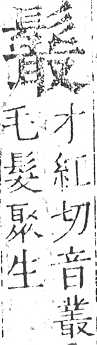 才紅切音叢
毛髮聚生